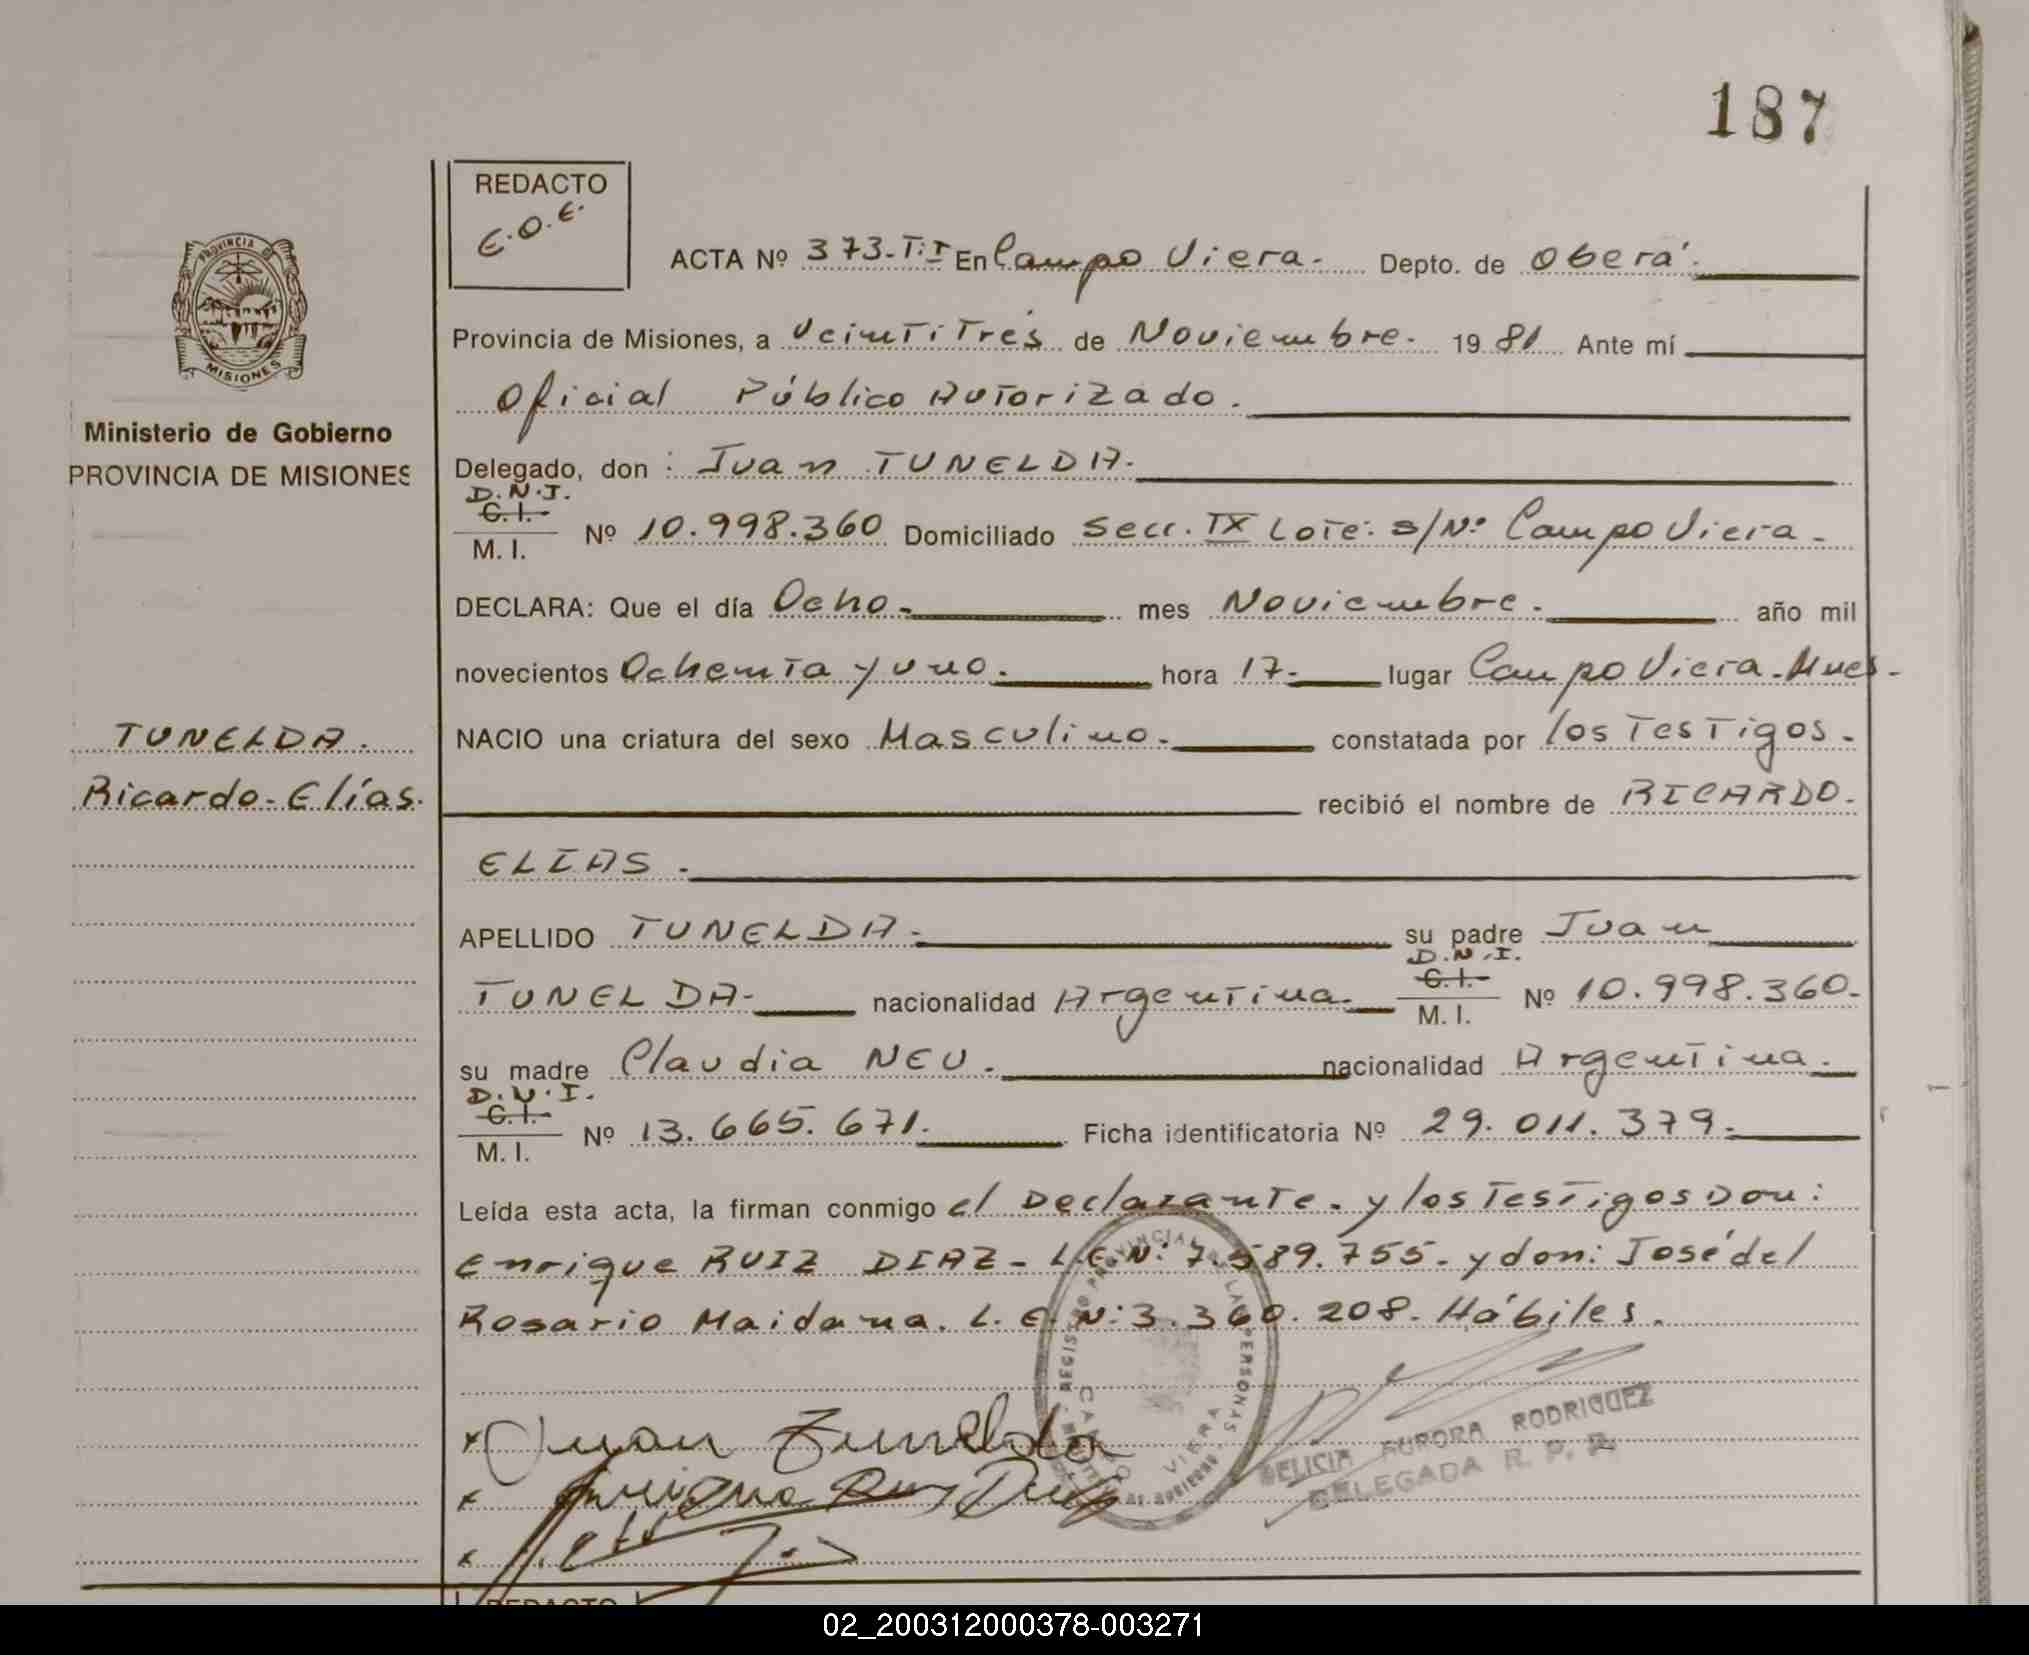 187
REDACTO
E.O.E.
ACTA Nº 373-T:I En Campo Viera. Depto. de Oberá.
PROVINCIA DE
MISIONES
Provincia de Misiones, a Veintitrés de Noviembre. 1981 Ante mí
Oficial Público Autorizado.
Ministerio de Gobierno
PROVINCIA DE MISIONES
Delegado, don: Juan TUNELDA.
D.N.I.
C.I.
M. I. Nº 10.998.360 Domiciliado Secc. IX Lote: s/Nº Campo Viera.
DECLARA: Que el día Ocho. mes Noviembre. año mil
novecientos Ochenta y uno. hora 17. lugar Campo Viera-Mnes.
TUNELDA.
NACIO una criatura del sexo Masculino. constatada por los Testigos.
Ricardo-Elías.
recibió el nombre de RICARDO.
ELIAS.
APELLIDO TUNELDA. su padre Juan
D.N.I.
C.I.
TUNELDA. nacionalidad Argentina. M. I. Nº 10.998.360.
su madre Claudia NEU. nacionalidad Argentina.
D.N.I.
C.I.
M. I. Nº 13.665.671. Ficha identificatoria Nº 29.011.379.
Leída esta acta, la firman conmigo el Declarante. y los Testigos Don:
Enrique RUIZ DIAZ - L.E.Nº: 7.589.755. y don: José del
Rosario Maidana. L.E.Nº: 3.360.208. Hábiles.
REGISTRO PROVINCIAL DE LAS PERSONAS
CAMPO VIERA
MINISTERIO DE GOBIERNO
x Juan Tunelda
x Enrique Ruiz Diaz
x
DELICIA AURORA RODRIGUEZ
DELEGADA R. P. P.
REDACTO
02_200312000378-003271